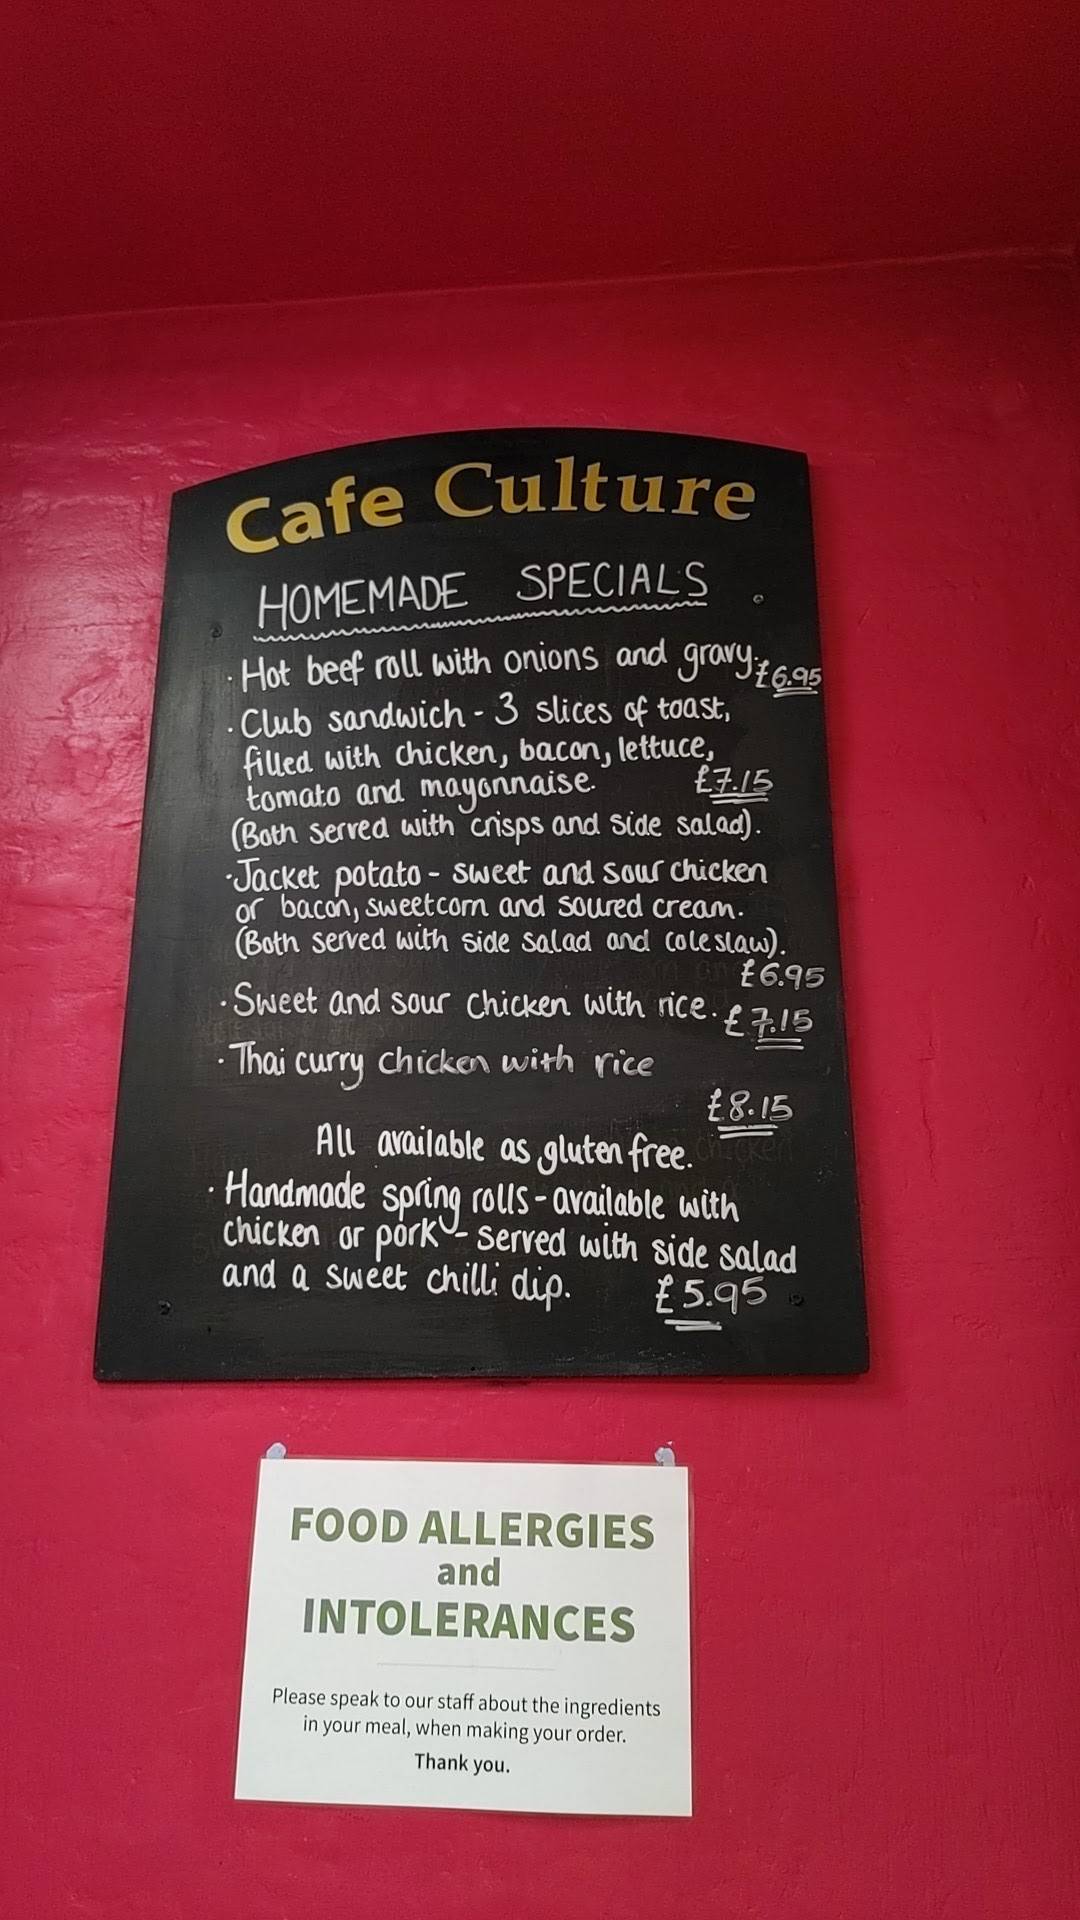 Cafe Culture
HOMEMADE SPECIALS
· Hot beef roll with onions and gravy. £6.95
· Club sandwich - 3 slices of toast,
filled with chicken, bacon, lettuce,
tomato and mayonnaise. £7.15
(Both served with crisps and side salad).
· Jacket potato - sweet and sour chicken
or bacon, sweetcorn and soured cream.
(Both served with side salad and coleslaw).
£6.95
· Sweet and sour chicken with rice. £7.15
· Thai curry chicken with rice
£8.15
All available as gluten free.
· Handmade spring rolls - available with
chicken or pork - served with side salad
and a sweet chilli dip. £5.95
FOOD ALLERGIES
and
INTOLERANCES
Please speak to our staff about the ingredients
in your meal, when making your order.
Thank you.